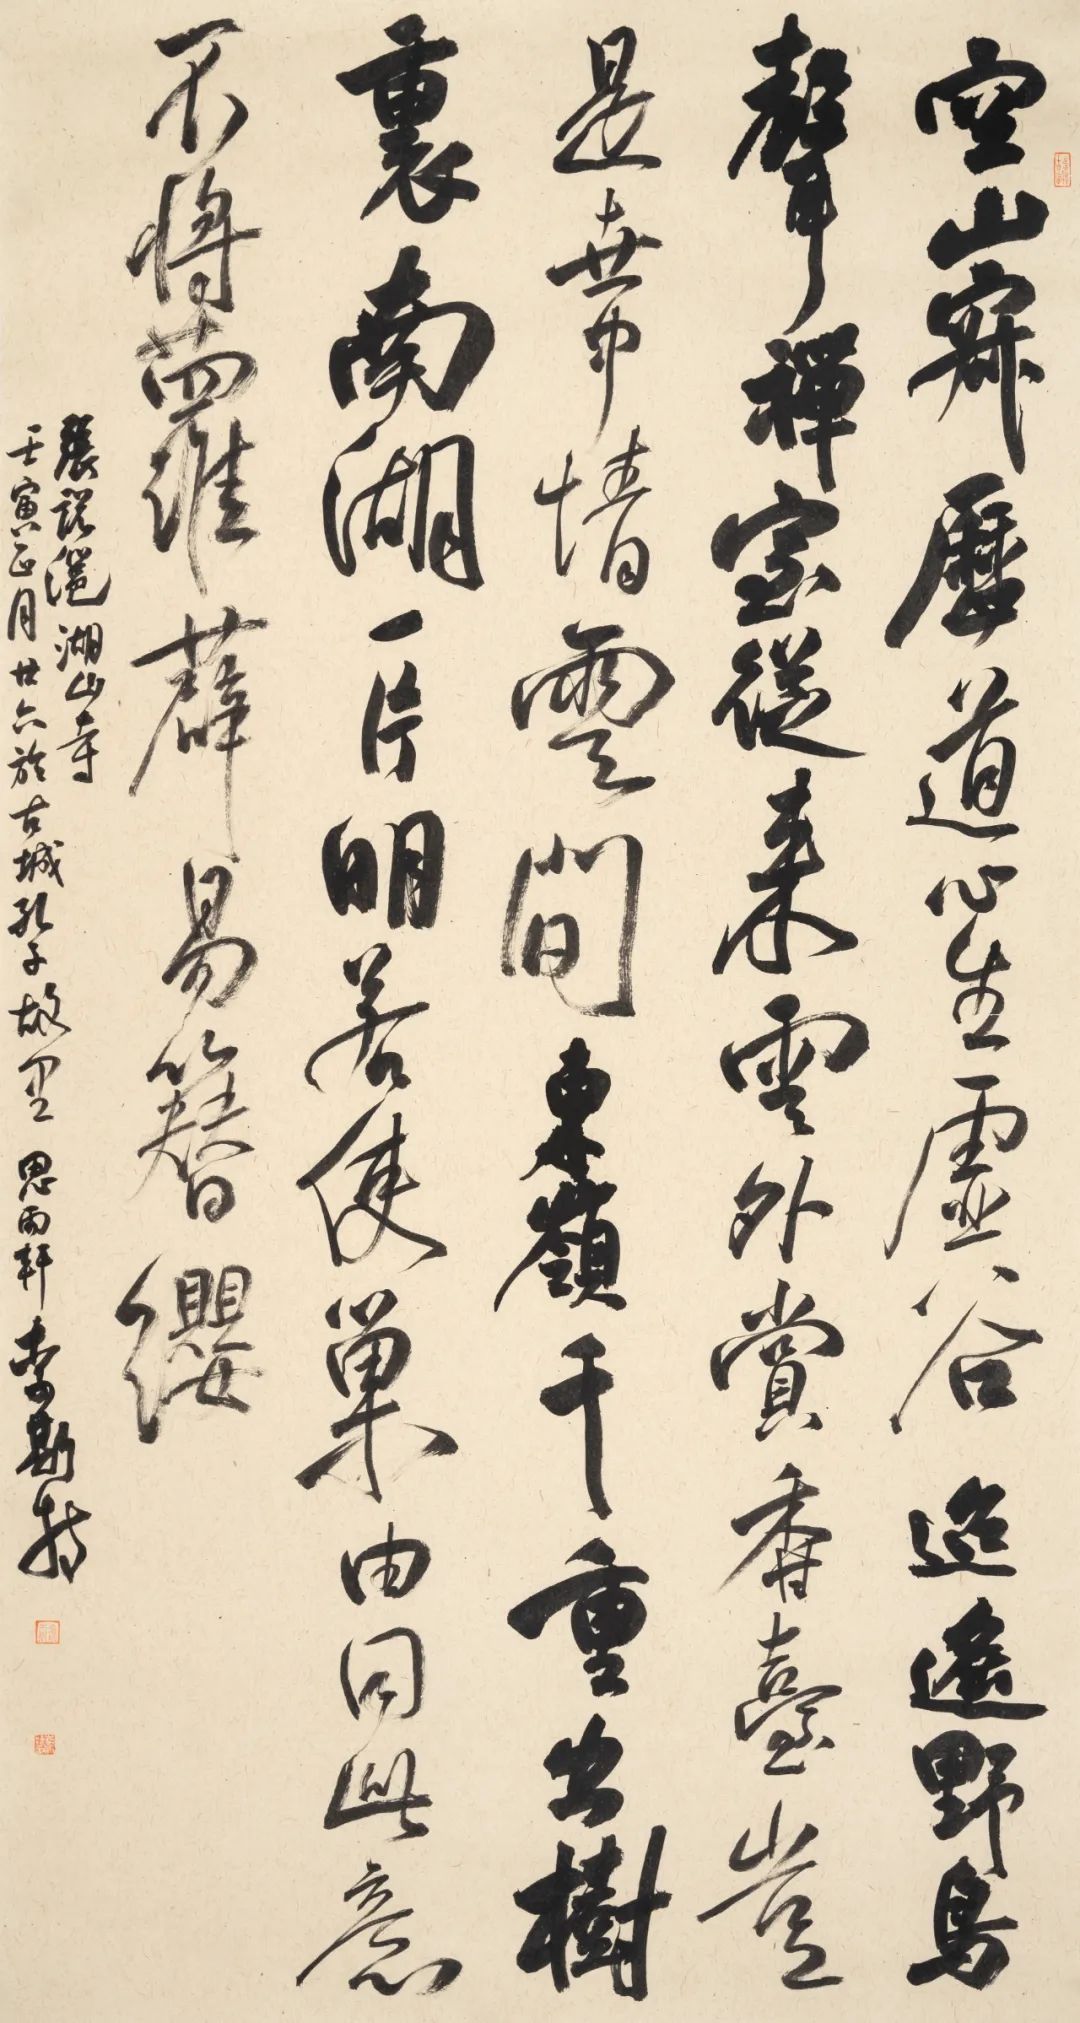 空山寂歷道心生虛谷迢遙野鳥
聲禪室從來雲外賞香臺豈
是世中情雲間東嶺千重出樹
裏南湖一片明若使巢由同此意
不將蘿薜易簪纓
張說灉湖山寺
壬寅正月廿六於古城孔子故里 思雨軒 李斯特